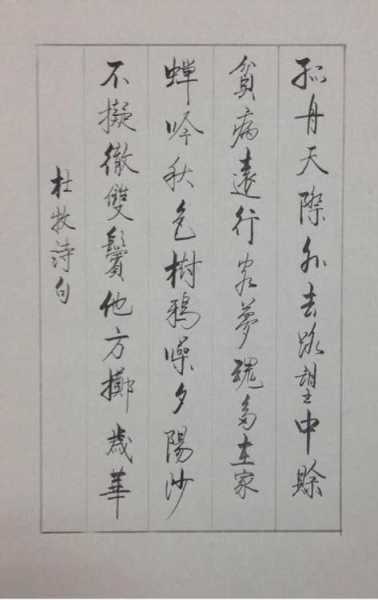 孤舟天際外去路望中賒
貧病遠行客夢魂多在家
蟬吟秋色樹鴉噪夕陽沙
不擬徹雙鬢他方擲歲華
杜牧詩句